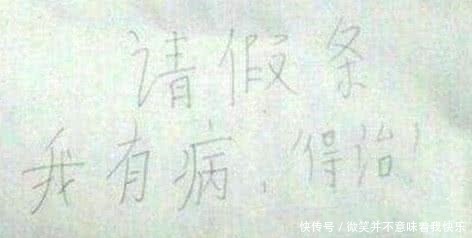 请假条
我有病，得治！
快传号／微笑并不意味着我快乐